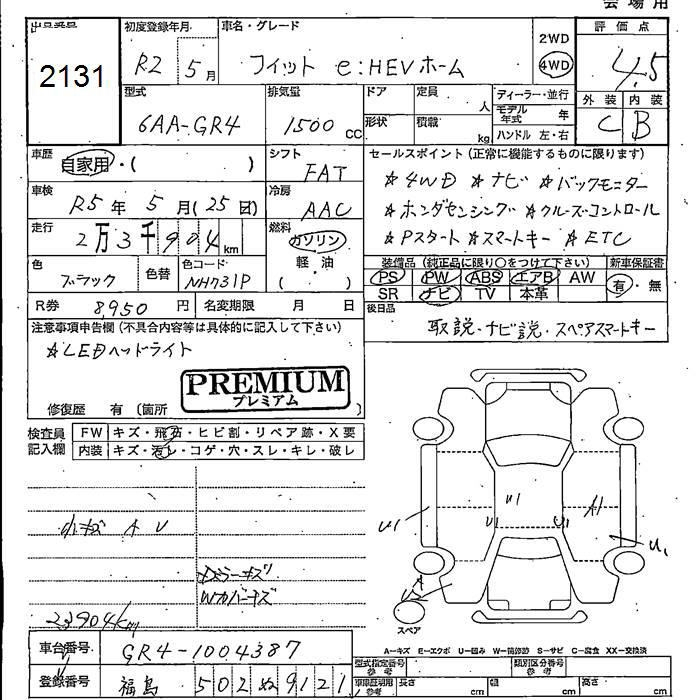 会場用
出品番号 初度登録年月 車名・グレード 評価点
2131 R2 5月 フィット e:HEVホーム 2WD 4WD 4.5
型式 排気量 ドア 定員 人 ディーラー・並行 外装 内装
6AA-GR4 1500 cc 形状 積載 kg モデル年式 年 C B
ハンドル 左・右
車歴 自家用・( ) シフト FAT セールスポイント(正常に機能するものに限ります)
車検 R5年 5月(25日) 冷房 AAC ☆4WD ☆ナビ ☆バックモニター
☆ホンダセンシング ☆クルーズコントロール
走行 2万3千904km 燃料 ガソリン 軽・油 ☆Pスタート ☆スマートキー ☆ETC
色 ブラック 色替 色コード NH731P 装備品(純正品に限り○をつけて下さい) 新車保証書
PS PW ABS エアB AW 有・無
SR ナビ TV 本革
R券 8,950円 名変期限 月 日 後日品
取説・ナビ説・スペアスマートキー
注意事項申告欄(不具合内容等は具体的に記入して下さい)
☆LEDヘッドライト
PREMIUM
プレミアム
修復歴 有(箇所 )
検査員記入欄 FW キズ・飛石・ヒビ割・リペア跡・X要
内装 キズ・汚レ・コゲ・穴・スレ・キレ・破レ
小キズ A U
U1 A1
U1 U1 U1 U1
ドアミラーキズ
Wカバーキズ
23904km
スペア
A=キズ E=エクボ U=凹み W=補修跡 S=サビ C=腐食 XX=交換済
車台番号 GR4-1004387
型式指定番号 参考 類別区分番号 参考
登録番号 福島 502 ぬ 9121
車庫証明用 参考 長さ cm 幅 cm 高さ cm